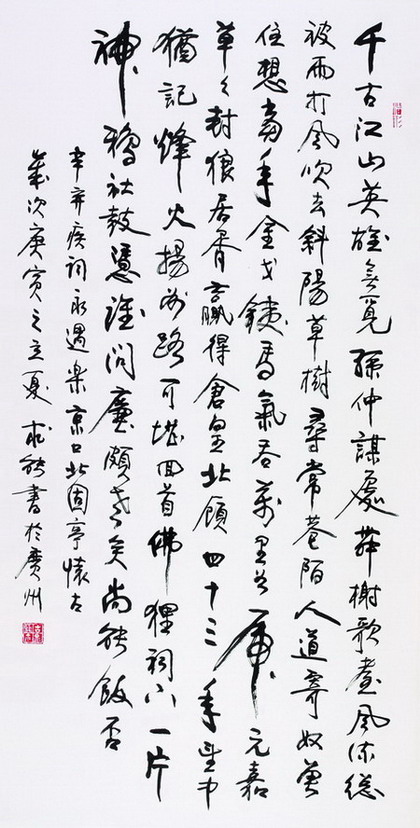 千古江山英雄無覓孫仲謀處舞榭歌臺風流總
被雨打風吹去斜陽草樹尋常巷陌人道寄奴曾
住想當年金戈鐵馬氣吞萬里如虎元嘉
草々封狼居胥贏得倉皇北顧四十三年望中
猶記烽火揚州路可堪回首佛狸祠下一片
神鴉社鼓憑誰問廉頗老矣尚能飯否
辛弃疾詞永遇樂京口北固亭懷古
歲次庚寅之立夏求能書於廣州